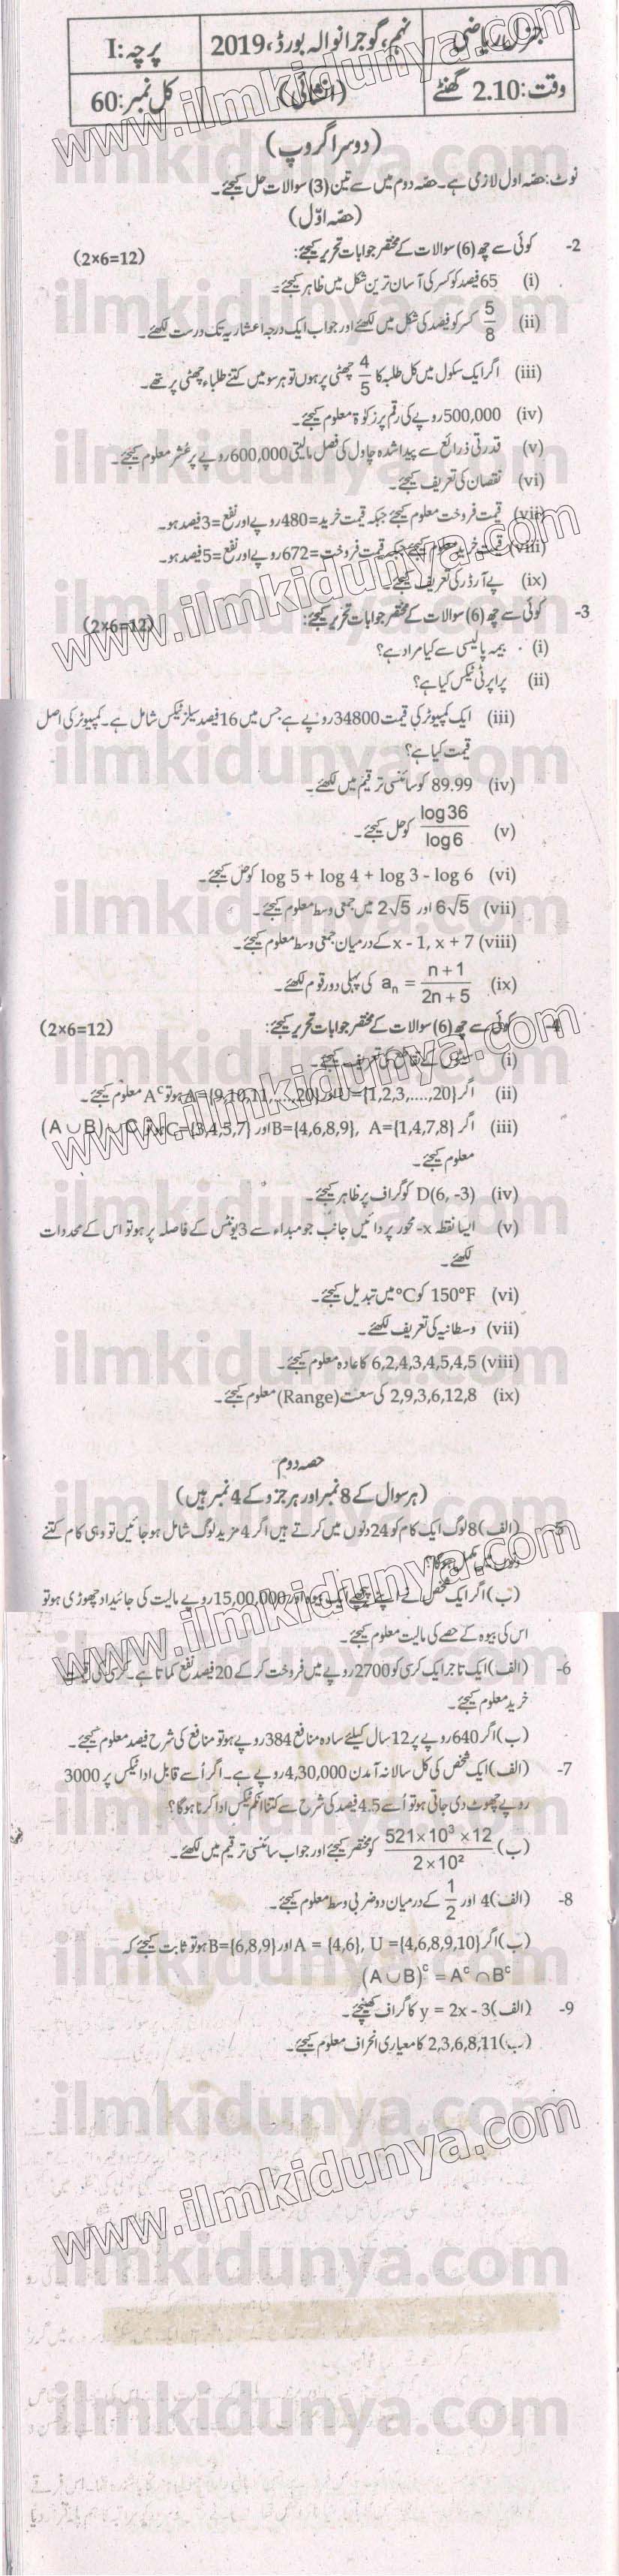 جنرل ریاضی نہم، گوجرانوالہ بورڈ، 2019 پرچہ: I
وقت: 2.10 گھنٹے (انشائی) کل نمبر: 60
(دوسرا گروپ)
نوٹ: حصہ اول لازمی ہے۔ حصہ دوم میں سے تین (3) سوالات حل کیجئے۔
(حصہ اوّل)
2- کوئی سے چھ (6) سوالات کے مختصر جوابات تحریر کیجئے: (2×6=12)
(i) 65 فیصد کو کسر کی آسان ترین شکل میں ظاہر کیجئے۔
(ii) 5/8 کسر کو فیصد کی شکل میں لکھئے اور جواب ایک درجہ اعشاریہ تک درست لکھئے۔
(iii) اگر ایک سکول میں کل طلبہ کا 4/5 چھٹی پر ہوں تو ہر سو میں کتنے طلباء چھٹی پر تھے۔
(iv) 500,000 روپے کی رقم پر زکوٰۃ معلوم کیجئے۔
(v) قدرتی ذرائع سے پیدا شدہ چاول کی فصل مالیتی 600,000 روپے پر عُشر معلوم کیجئے۔
(vi) نقصان کی تعریف کیجئے۔
(vii) قیمت فروخت معلوم کیجئے جبکہ قیمت خرید = 480 روپے اور نفع = 3 فیصد ہو۔
(viii) قیمت خرید معلوم کیجئے جبکہ قیمت فروخت = 672 روپے اور نفع = 5 فیصد ہو۔
(ix) پے آرڈر کی تعریف کیجئے۔
3- کوئی سے چھ (6) سوالات کے مختصر جوابات تحریر کیجئے: (2×6=12)
(i) بیمہ پالیسی سے کیا مراد ہے؟
(ii) پراپرٹی ٹیکس کیا ہے؟
(iii) ایک کمپیوٹر کی قیمت 34800 روپے ہے جس میں 16 فیصد سیلز ٹیکس شامل ہے۔ کمپیوٹر کی اصل
قیمت کیا ہے؟
(iv) 89.99 کو سائنسی ترقیم میں لکھئے۔
(v) log36/log6 کو حل کیجئے۔
(vi) log 5 + log 4 + log 3 - log 6 کو حل کیجئے۔
(vii) 6√5 اور 2√5 میں جمعی وسط معلوم کیجئے۔
(viii) x - 1, x + 7 کے درمیان جمعی وسط معلوم کیجئے۔
(ix) aₙ = n+1/2n+5 کی پہلی دو رقوم لکھئے۔
4- کوئی سے چھ (6) سوالات کے مختصر جوابات تحریر کیجئے: (2×6=12)
(i) سیٹوں کے تقاطع کی تعریف کیجئے۔
(ii) اگر U={1,2,3,....,20} اور A={9,10,11,....,20} ہو تو Aᶜ معلوم کیجئے۔
(iii) اگر A={1,4,7,8}, B={4,6,8,9} اور C={3,4,5,7} ہو تو (A∪B)∪C
معلوم کیجئے۔
(iv) D(6, -3) کو گراف پر ظاہر کیجئے۔
(v) ایسا نقطہ x- محور پر دائیں جانب جو مبداء سے 3 یونٹس کے فاصلہ پر ہو تو اس کے محددات
لکھئے۔
(vi) 150°F کو °C میں تبدیل کیجئے۔
(vii) وسطانیہ کی تعریف لکھئے۔
(viii) 6,2,4,3,4,5,4,5 کا عادہ معلوم کیجئے۔
(ix) 2,9,3,6,12,8 کی سعت (Range) معلوم کیجئے۔
حصہ دوم
(ہر سوال کے 8 نمبر اور ہر جزو کے 4 نمبر ہیں)
5- (الف) 8 لوگ ایک کام کو 24 دنوں میں کرتے ہیں اگر 4 مزید لوگ شامل ہو جائیں تو وہی کام کتنے
دنوں میں مکمل ہو گا؟
(ب) اگر ایک شخص نے اپنے پیچھے ایک بیوہ اور 15,00,000 روپے مالیت کی جائیداد چھوڑی ہو تو
اس کی بیوہ کے حصے کی مالیت معلوم کیجئے۔
6- (الف) ایک تاجر ایک کرسی کو 2700 روپے میں فروخت کر کے 20 فیصد نفع کماتا ہے۔ کرسی کی قیمت
خرید معلوم کیجئے۔
(ب) اگر 640 روپے پر 12 سال کیلئے سادہ منافع 384 روپے ہو تو منافع کی شرح فیصد معلوم کیجئے۔
7- (الف) ایک شخص کی کل سالانہ آمدن 4,30,000 روپے ہے۔ اگر اُسے قابل ادا ٹیکس پر 3000
روپے چھوٹ دی جاتی ہو تو اُسے 4.5 فیصد کی شرح سے کتنا انکم ٹیکس ادا کرنا ہو گا؟
(ب) 521×10³×12/2×10² کو مختصر کیجئے اور جواب سائنسی ترقیم میں لکھئے۔
8- (الف) 4 اور 1/2 کے درمیان دو ضربی وسط معلوم کیجئے۔
(ب) اگر U={4,6,8,9,10}, A = {4,6} اور B={6,8,9} ہو تو ثابت کیجئے کہ
(A∪B)ᶜ = Aᶜ∩Bᶜ
9- (الف) y = 2x - 3 کا گراف کھینچئے۔
(ب) 2,3,6,8,11 کا معیاری انحراف معلوم کیجئے۔
www.ilmkidunya.com
ilmkidunya.com